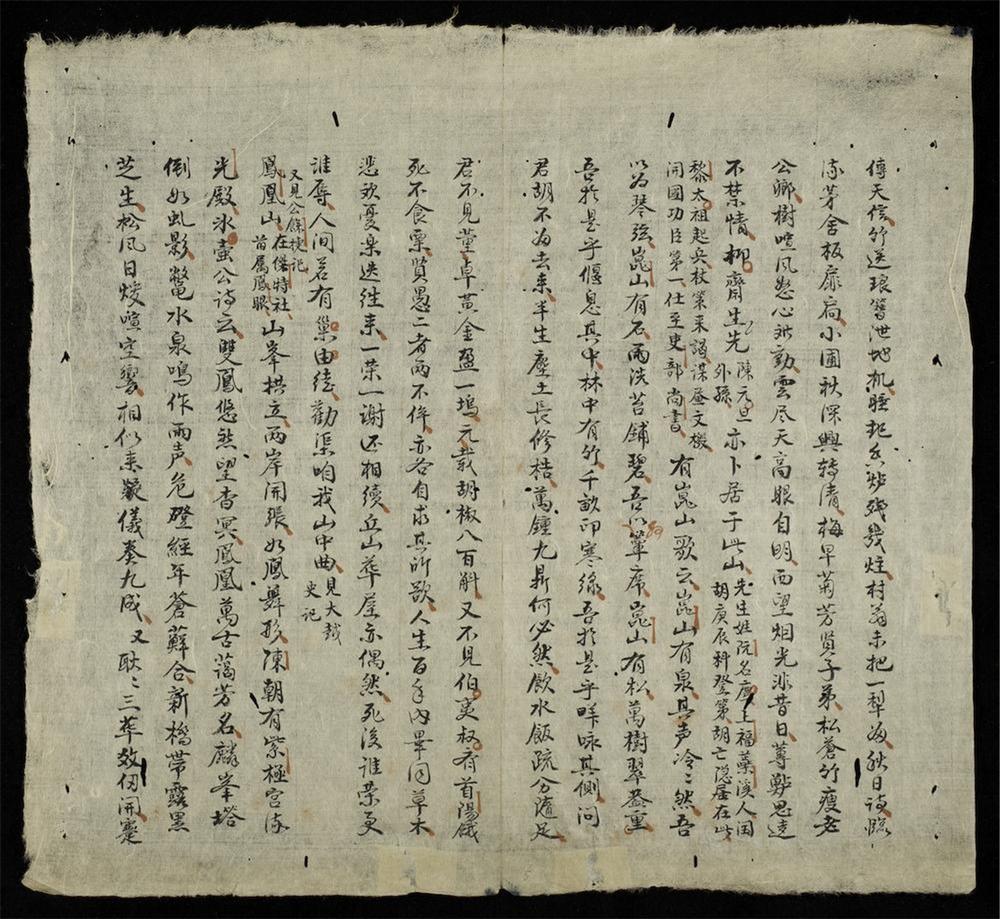 傳天信竹送琅篸泄地机睡起香炉残幾炷村翁未把一犁為秋日詩臨
流茅舍板扉扃小圃秋深興轉清梅早菊芳賢子弟松蒼竹瘦老
公卿樹喧风怒心無動雲尽天高眼自明而望烟光非昔日尊鄭思遠
不禁情柳齋生先陳元旦外孫亦卜居于此山先生姓阮名廌上福蘂溪人閏胡庚辰科登第胡亡隐居在此
黎太祖起兵杖策来謁謀畫文檄開國功臣第一仕至吏部尚書有崑山歌云崑山有泉其声冷〻然吾
以为琴弦崑山有石雨洗苔鋪碧吾以為簟席崑山有松萬樹翠蓋重
吾於是乎偃息其中林中有竹千畝印寒綠吾於是乎吟咏其側問
君胡不为去来半生塵土長修梏萬鍾九鼎何必然飲水飯疏分隨足
君不見董卓黄金盈一塢元載胡椒八百斛又不見伯夷叔有首陽餓
死不食粟賢愚二者兩不侔亦各自求其所欲人生百年内畢同草木
悲欢憂楽迭往来一荣一謝还相續丘山華屋亦偶然死後谁榮更
谁辱人间若有巢由徒勸渠听我山中曲見大越史記
鳳凰山又見公餘捷記在傑特社首属鳳眼山峯拱立两岸開張如鳳舞形陳朝有紫極宮流
光殿氷壺公诗云雙鳳悠然望杳冥鳳凰萬古藹芳名麟峯塔
倒如虬影鼈水泉鳴作雨声危磴經年蒼蘚合新橋帶露黑
芝生松风日夜喧空響相似来凝儀奏九成又耿〻三華效仞開蹇